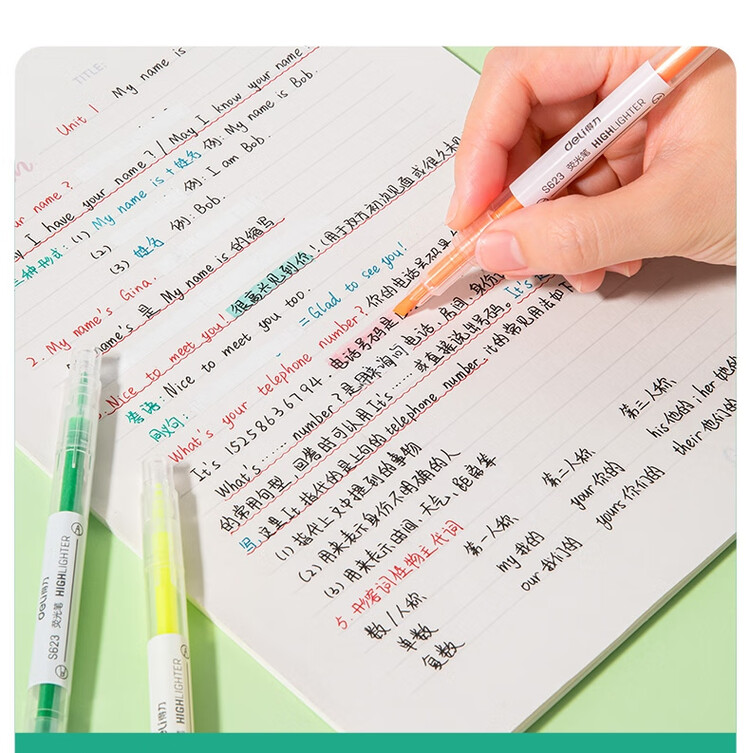 TITLE
Unit 1 My name is
My name is
ur name? / May I know your name?
I have your name? 例: My name is Bob.
三种形式: (1) My name is + 姓名 例: I am Bob.
(2) 例: Bob.
(3) 姓名
2. My name's Gina.
name's 是 My name is 的缩写
Nice to meet you! 很高兴见到你! (用于双方初次见面或很久未见
答语: Nice to meet you too.
同义句: = Glad to see you!
What's your telephone number? 你的电话号码是
It's 15258636794. 电话号码是
What's …… number? 是用来询问电话, 房间, 身份
的常用句型, 回答时可以用 It's …… 或直接说出号码. It's
写, 这里 It 指代的是上句的 telephone number. it 的常见用法如下
(1) 指代上文中提到的事物
(2) 用来表示身份不明确的人
(3) 用来表示时间、天气、距离等
5. 形容词性物主代词
数/人称 第一人称 第二人称 第三人称
单数 my 我的 your 你的 his 他的 her 她的
复数 our 我们的 yours 你们的 their 他们的
deli得力
S623 荧光笔 HIGHLIGHTER
deli得力
S623 荧光笔 HIGHLIGHTER
deli得力
HIGHLIGHTER